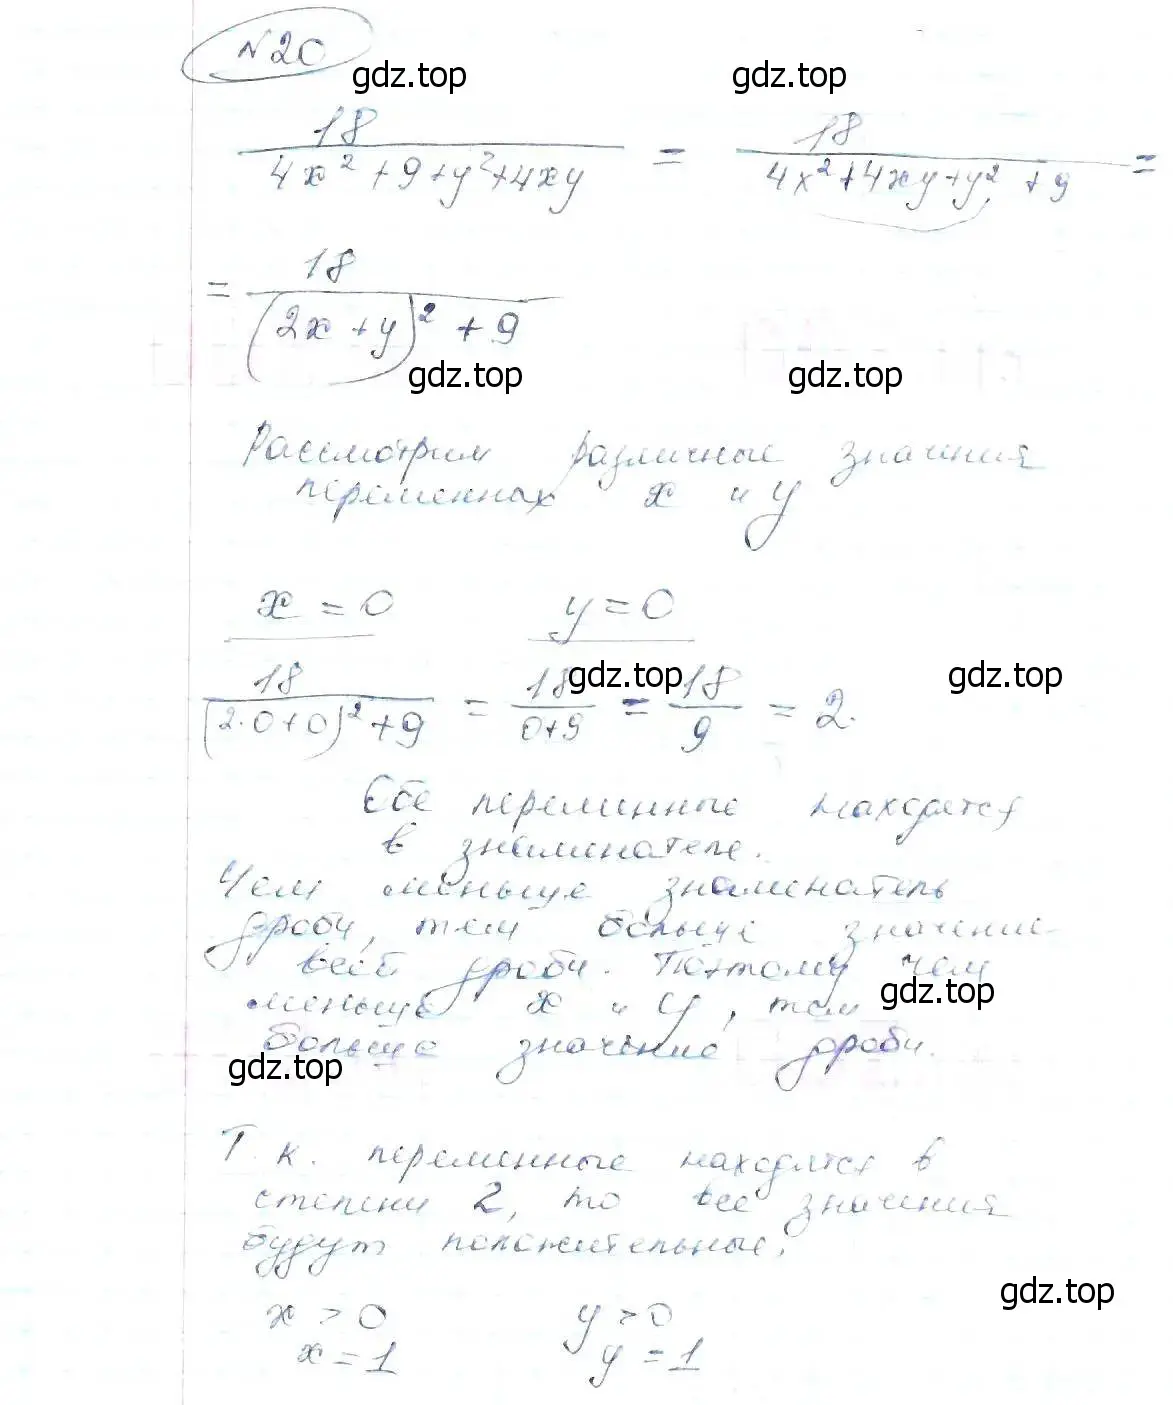 №20
gdz.top gdz.top
18 / (4x² + 9 + y² + 4xy) = 18 / (4x² + 4xy + y² + 9) =
= 18 / ((2x + y)² + 9)
gdz.top gdz.top
Рассмотрим различные значения
переменных x и y
x = 0 y = 0
gdz.top gdz.top
18 / ((2·0+0)² + 9) = 18 / (0+9) = 18 / 9 = 2.
Обе переминные находятся
в знаменателе.
Чем меньше знаменатель
дроби, тем больше значение
всей дроби. Поэтому чем
gdz.top
меньше x и y, тем
больше значение дроби.
gdz.top
Т.к. переменные находятся в
степени 2, то все значения
будут положительные.
gdz.top
x > 0 y > 0
x = 1 y = 1